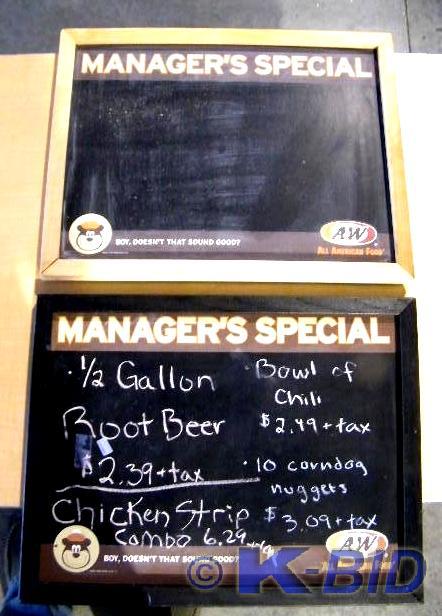 MANAGER'S SPECIAL
BOY, DOESN'T THAT SOUND GOOD?
A&W
ALL AMERICAN FOOD
MANAGER'S SPECIAL
· 1/2 Gallon
Root Beer
$2.39 + tax
Chicken Strip
Combo 6.29 + tax
· Bowl of
Chili
$2.49 + tax
· 10 corndog
nuggets
$3.09 + tax
BOY, DOESN'T THAT SOUND GOOD?
A&W
© K-BID